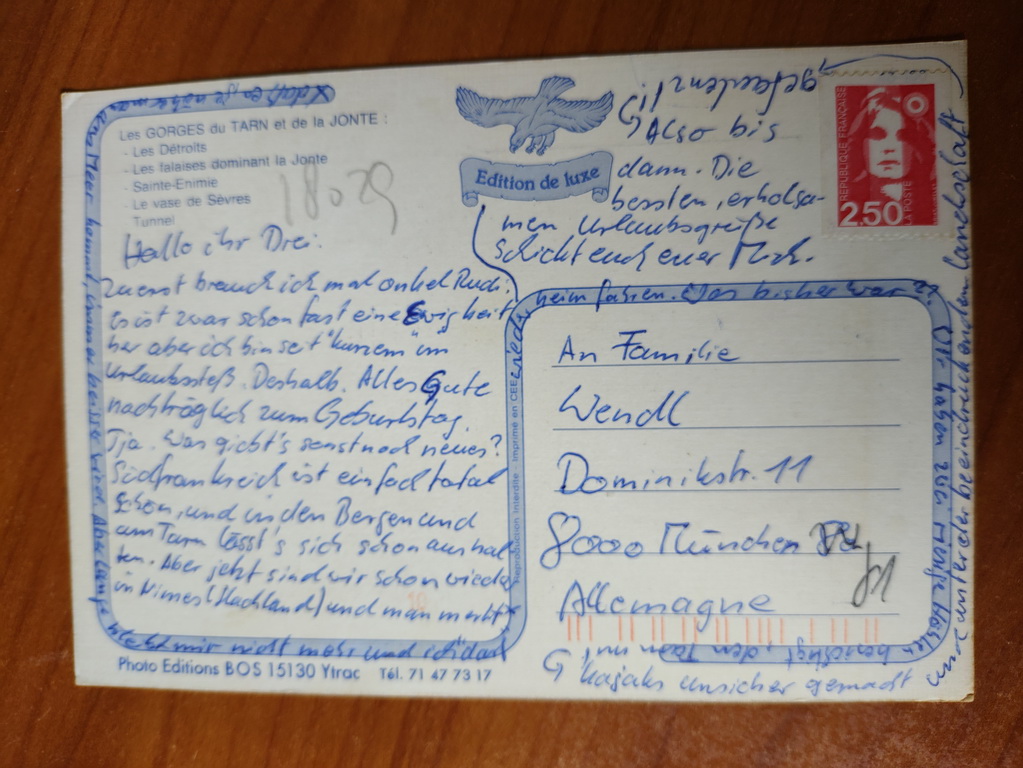 Les GORGES du TARN et de la JONTE :
- Les Détroits
- Les falaises dominant la Jonte
- Sainte-Enimie
- Le vase de Sèvres
Tunnel
18029
Edition de luxe
REPUBLIQUE FRANÇAISE
LA POSTE
2,50
Hallo ihr Drei.
Zuerst brauch ich mal onkel Rudi:
Es ist zwar schon fast eine Ewigkeit
her aber ich bin seit "kurzem" im
Urlaubsstreß. Deshalb. Alles Gute
nachträglich zum Geburtstag.
Tja. Was giebt's sonst noch neues?
Südfrankreich ist einfach total
schön, und in den Bergen und
am Tarn lässt's sich schon aushal
ten. Aber jetzt sind wir schon wieder
in Nimes (Flachland) und man merkt
x daß, en je näher man
ans Meer kommt, immer heisser wird. Also lange
mir nicht mehr und
wieder
heim fahren. Was bisher war?:
Wir haben uns Höhlen
besichtigt, den Tarn mit
Kajaks unsicher gemacht
und unterer beeindruckenden Landschaft
gefaulenzt!
Also bis
dann. Die
bessten, erholsa-
men Urlaubsgrüße
schickt euch euer Mich.
An Familie
Wendl
Dominikstr. 11
8000 München
81
Allemagne
Reproduction interdite - Imprimé en CEE
Photo Editions BOS 15130 Ytrac Tél. 71 47 73 17